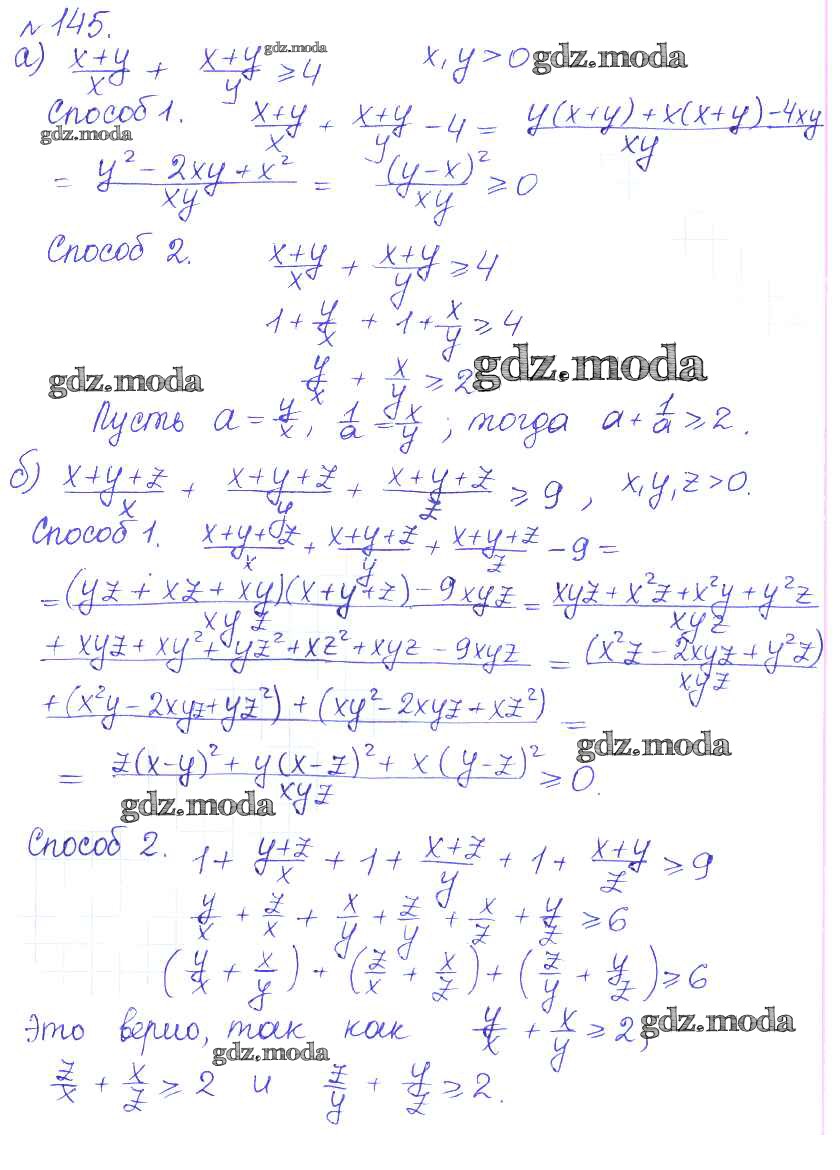 № 145.
а) (x+y)/x + (x+y)/y ≥ 4    x, y > 0
gdz.moda
gdz.moda
Способ 1. (x+y)/x + (x+y)/y − 4 = (y(x+y) + x(x+y) − 4xy)/xy
gdz.moda
= (y² − 2xy + x²)/xy = (y−x)²/xy ≥ 0
Способ 2. (x+y)/x + (x+y)/y ≥ 4
1 + y/x + 1 + x/y ≥ 4
y/x + x/y ≥ 2
gdz.moda
gdz.moda
Пусть a = y/x, 1/a = x/y ; тогда a + 1/a ≥ 2.
б) (x+y+z)/x + (x+y+z)/y + (x+y+z)/z ≥ 9, x, y, z > 0.
Способ 1. (x+y+z)/x + (x+y+z)/y + (x+y+z)/z − 9 =
= ((yz + xz + xy)(x+y+z) − 9xyz)/xyz = (xyz + x²z + x²y + y²z
+ xyz + xy² + yz² + xz² + xyz − 9xyz)/xyz = ((x²z − 2xyz + y²z)
+ (x²y − 2xyz + yz²) + (xy² − 2xyz + xz²))/xyz =
gdz.moda
= (z(x−y)² + y(x−z)² + x(y−z)²)/xyz ≥ 0.
gdz.moda
Способ 2. 1 + (y+z)/x + 1 + (x+z)/y + 1 + (x+y)/z ≥ 9
y/x + z/x + x/y + z/y + x/z + y/z ≥ 6
(y/x + x/y) + (z/x + x/z) + (z/y + y/z) ≥ 6
Это верно, так как y/x + x/y ≥ 2,
gdz.moda
gdz.moda
z/x + x/z ≥ 2 и z/y + y/z ≥ 2.